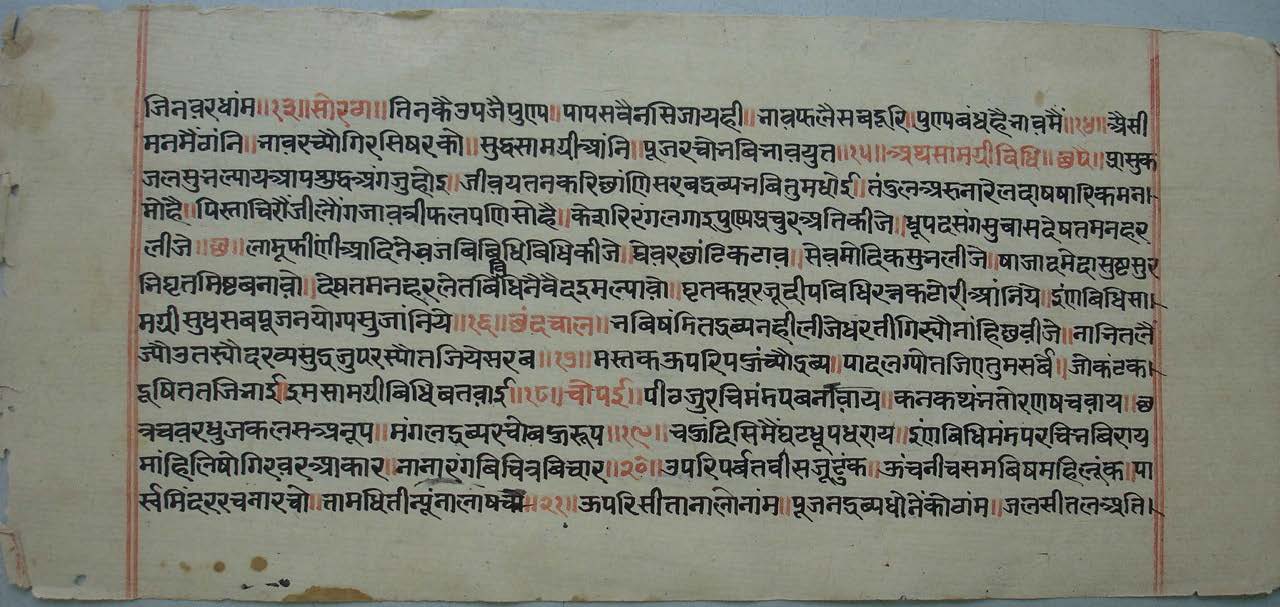 जिनवरधांम॥१३॥सोरठा॥तिनकैउपजैपुण्य॥पापसबैनसिजायही॥नावफलैसबदूरि॥पुण्यबंधुहैनावमैं॥१४॥ऐसी
मनमैंठांनि॥नावरच्यौगिरसिषरकौ॥सुद्धसामग्रीआंनि॥पूजरचोनबिनावयुत॥१५॥अथसामग्रीबिधि॥छप्पै॥प्रासुक
जलसुनल्यायआपशुद्धअगजुहोइ॥जीवयतनकरिछांणिसरबद्रव्यनबितुमधोई॥तंडुलअरुनारेलदाषषारिकमन।
मोहै॥पिस्ताचिरौंजीलौंगजावत्रीफलपणिसोहै॥केशरिरंगलगाइपुष्पप्रचुरअतिकीजे॥धूपदसंगसुवासदेषतमनहर
लीजे॥छ॥लाडूफीणीआदिनेवजबिबिधिबिधिकीजे॥घेवरछांटिकटाव॥सेवमोदिकसुनलीजे॥षाजादमेदासुष्टसुर
निघृतमिष्टबनावो॥देषतमनहरलेतबिधिनैवैदइमल्यावो॥घृतकपूरजूदीपबिधिरत्नकटोरीआंनिये॥इंणबिधिसा।
मग्रीसुधसबपूजनयोग्यसुजांनिये॥१६॥छंदचाल॥नबिषंमितद्रव्यनहीलीजेधरतीगिस्यौनांहिछवीजे॥नानितलै
ज्यौउतस्यौदरव्यसुइजुपरस्पौतजियेसरब॥१७॥मस्तकऊपरिपऊंच्यौद्रव्य॥पादलग्यौतजिएतुमसर्बे॥जोकंटक।
दूषिततजिनाई।इमसामग्रीबिधिबतवाई॥१८॥चौपई॥पीठजुरचिमंमपबनावाय॥कनकथंनतोरणषचवाय॥छ
त्रचवरधुजकलसअनूप॥मंगलद्रव्यरचोबऊरूप॥१९॥चऊंदिसिमैंघटधूपधराय॥इंणबिधिमंमपरचिनबिराय
मांहिलिषोगिरवरआकार॥नानारंगबिचित्रबिचार॥२०॥उपरिपर्बतवीसजूटुंक॥ऊंचनीचसमबिषमहिलंक॥पा
र्स्वमिदररचनारचो॥तामधितीन्यूंनालाषचो॥२१॥ऊपरिसीतानालोनांम॥पूजनद्रव्यधोनेकोठांम॥जलसीतलअति।